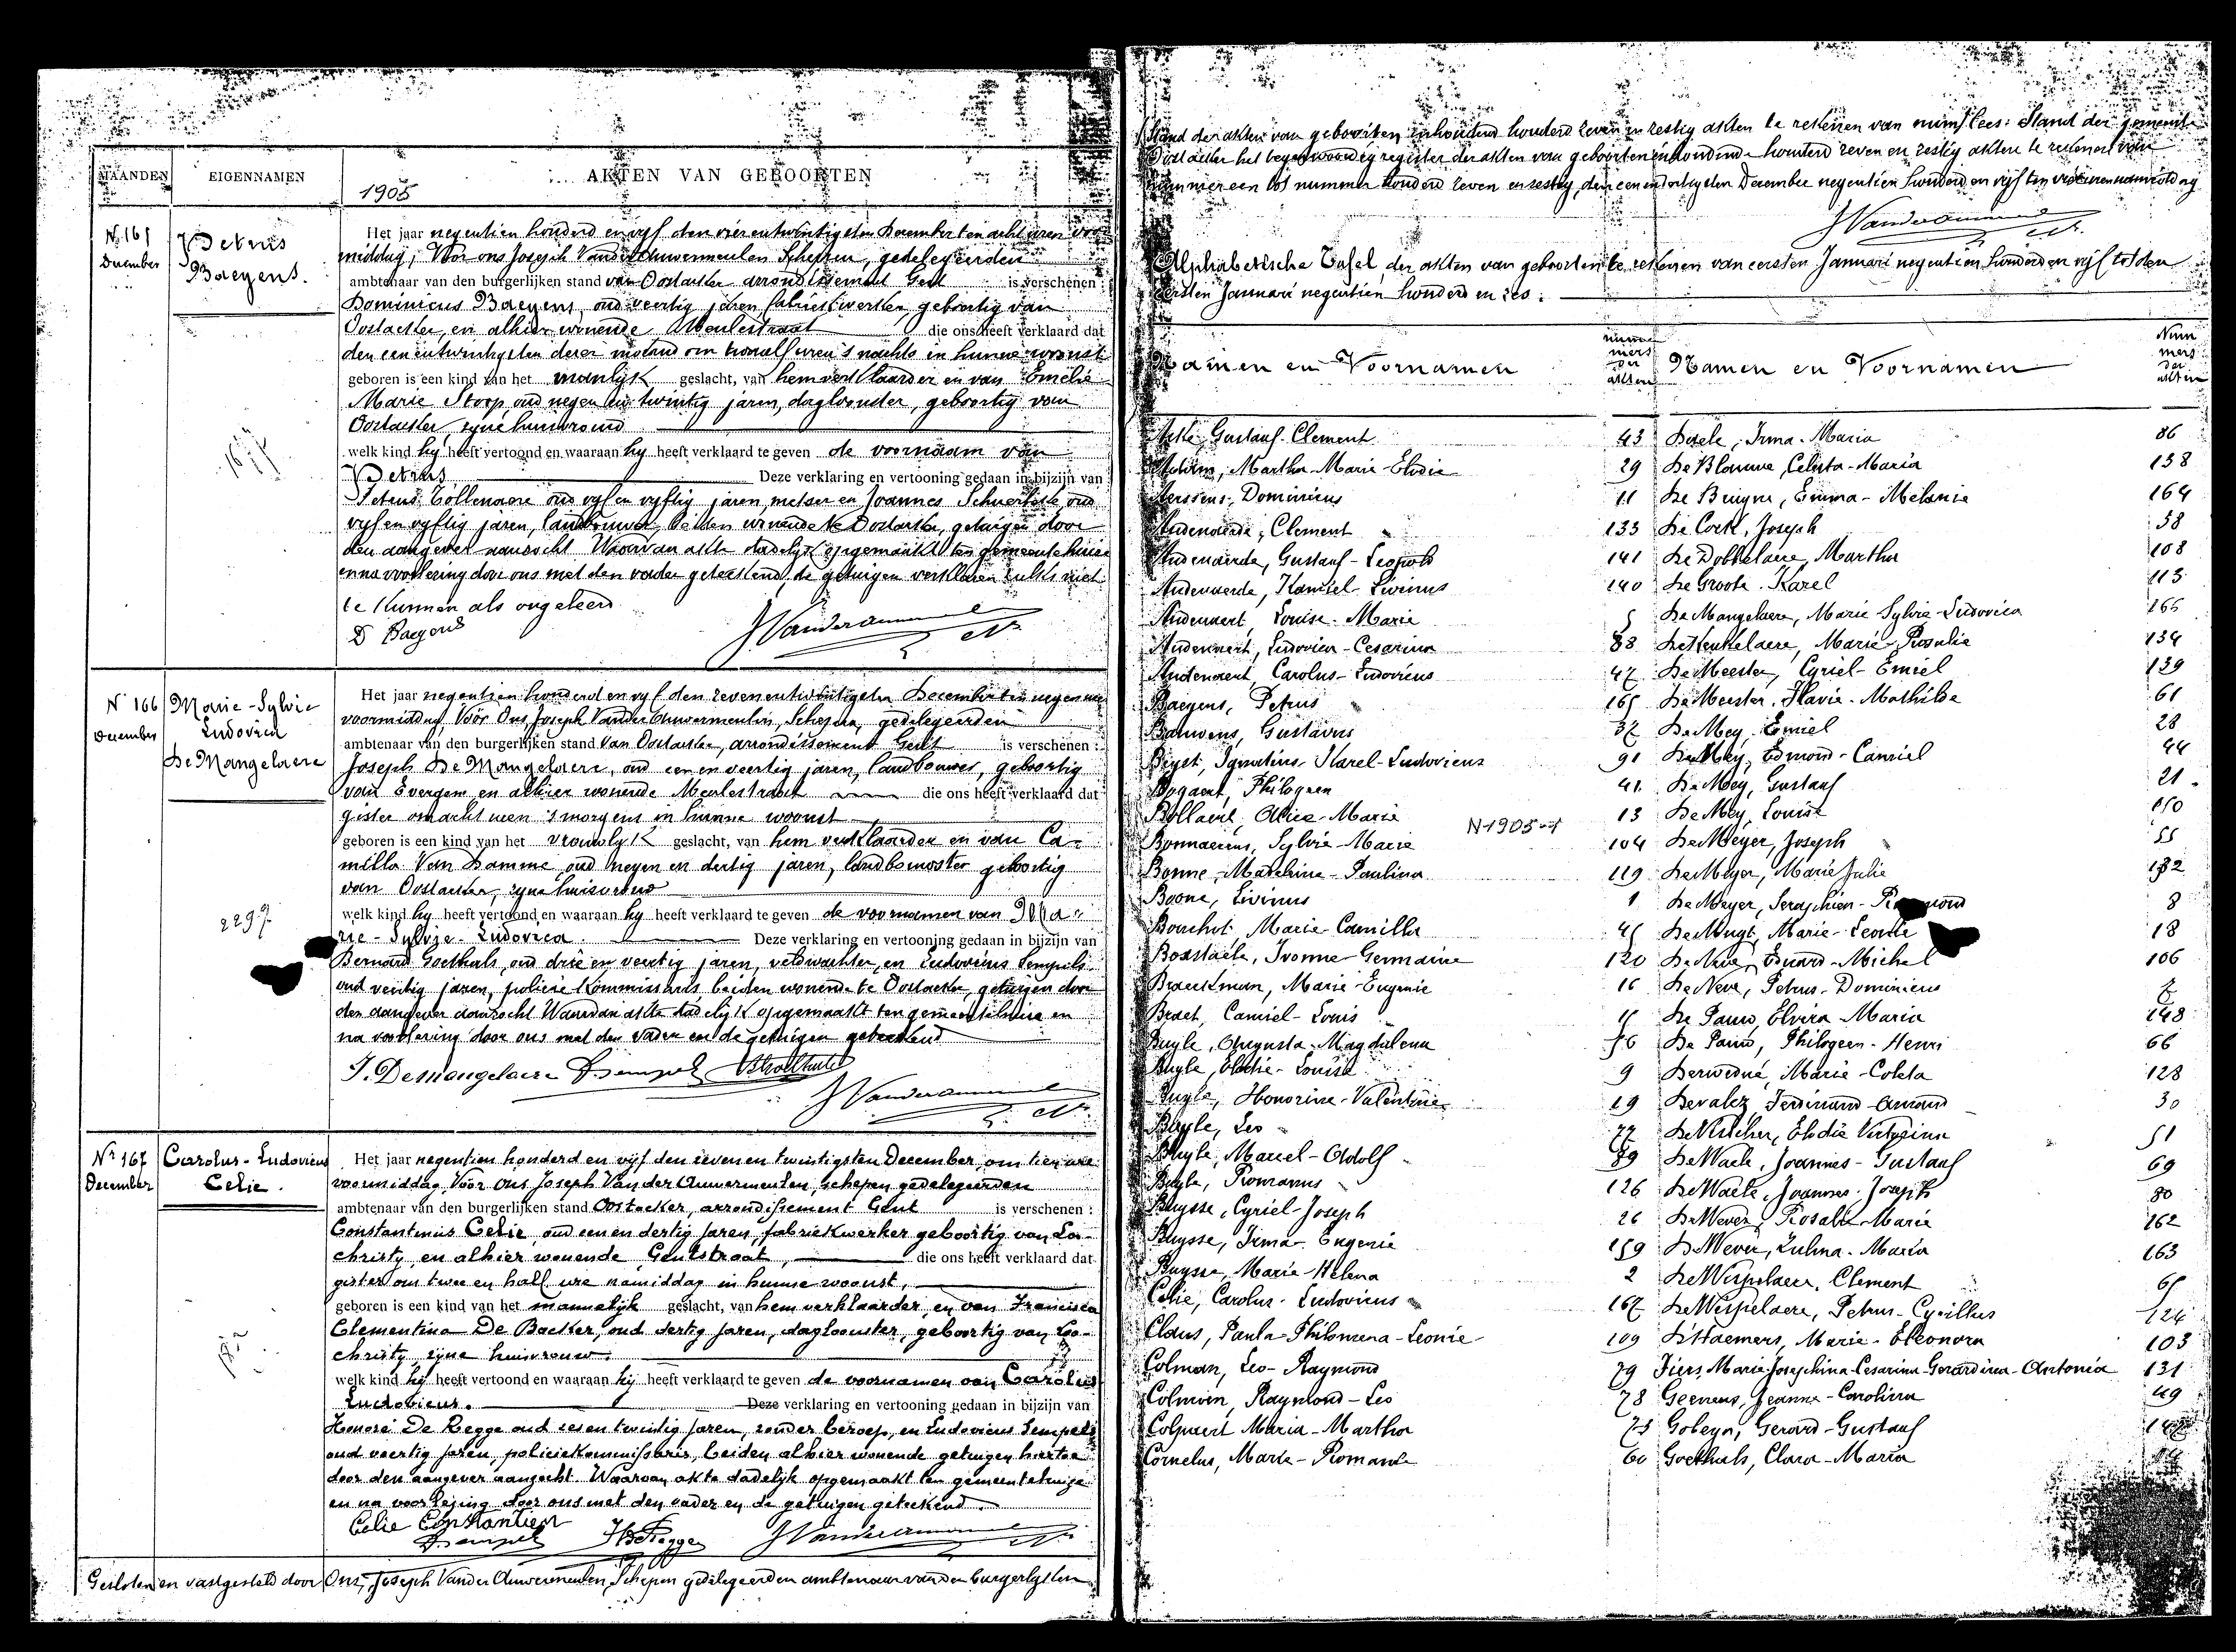 MAANDEN
EIGENNAMEN
1905
AKTEN VAN GEBOORTEN
N. 165
December
Petrus
Baeyens.
Het jaar negentien honderd en vijf den vier entwintigsten December ten acht uren voor
middag, Voor ons Joseph Vander Auwermeulen Schepen, gedelegeerden
ambtenaar van den burgerlijken stand van Oostacker arrondissement Gent is verschenen :
Dominicus Baeyens, oud veertig jaren fabriekwerker, geboortig van
Oostacker, en alhier wonende Meulestraat die ons heeft verklaard dat
den een entwintigsten dezer maand om twaalf uren 's nachts in hunne woonst
geboren is een kind van het manlijk geslacht, van hem verklaarder en van Emelie
Marie Stoop, oud negen en twintig jaren, dagloonster, geboortig van
Oostacker, zijne huisvrouw
welk kind hy heeft vertoond en waaraan hy heeft verklaard te geven de voornaam van
Petrus Deze verklaring en vertooning gedaan in bijzijn van
Petrus Tollenaere oud vyf en vyftig jaren, metser en Joannes oud
vyf en vyftig jaren, landbouwer, beiden wonende te Oostacker, getuigen door
den aangever aanzocht Waarvan akte dadelyk opgemaakt ten gemeentehuize
en na voorlezing door ons met den vader geteekend, de getuigen verklaren zulks niet
te kunnen als ongeleerd
D Baeyens JVanderauwermeulen
N 166
December
Marie-Sylvie
Ludovica
De Mangelaere
Het jaar negentien honderd en vyf den zeven entwintigsten December ten negen ure
voormiddag, Vóór Ons Joseph Vander Auwermeulen, Schepen, gedelegeerden
ambtenaar van den burgerlijken stand van Oostacker, arrondissement Gent is verschenen :
Joseph De Mangelaere, oud een en veertig jaren, landbouwer, geboortig
van Evergem en alhier wonende Meulestraat die ons heeft verklaard dat
gister om acht uren 's morgens in hunne woonst
geboren is een kind van het vrouwlyk geslacht, van hem verklaarder en van Ca-
milla Van Damme oud negen en dertig jaren, landbouwster geboortig
van Oostacker, zijne huisvrouw
welk kind hy heeft vertoond en waaraan hy heeft verklaard te geven de voornamen van Ma-
rie-Sylvie-Ludovica. Deze verklaring en vertooning gedaan in bijzijn van
Bernard Goethals, oud drie en veertig jaren, veldwachter, en Ludovicus Sempels
oud veertig jaren, policie kommissaris, beiden wonende te Oostacker, getuigen door
den aangever aanzocht Waarvan akte dadelyk opgemaakt ten gemeentehuize en
na voorlezing door ons met den vader en de getuigen geteekend
2297
J. Demangelaere LSempels BGoethals
JVanderauwermeulen
Nr 167
December
Carolus-Ludovicus
Celie.
Het jaar negentien honderd en vijf den zeven en twintigsten December, om tien ure
voormiddag, Voor ons Joseph Van der Auwermeulen, schepen gedelegeerden
ambtenaar van den burgerlijken stand Oostacker, arrondissement Gent is verschenen :
Constantinus Celie, oud een en dertig jaren, fabriekwerker geboortig van Loo-
christy, en alhier wonende, Gentstraat, die ons heeft verklaard dat
gister om twee en half ure namiddag in hunne woonst,
geboren is een kind van het mannelijk geslacht, van hem verklaarder, en van Francisca
Clementina De Backer, oud dertig jaren, dagloonster, geboortig van Loo-
christy, zijne huisvrouw.
welk kind hij heeft vertoond en waaraan hij heeft verklaard te geven de voornamen van Carolus
Ludovicus. Deze verklaring en vertooning gedaan in bijzijn van
Honoré De Regge oud zes en twintig jaren, zonder beroep, en Ludovicus Sempels
oud veertig jaren, policiekommissaris, beiden alhier wonende getuigen hiertoe
door den aangever aangezocht. Waarvan akte dadelijk opgemaakt ten gemeentehuize
en na voorlezing door ons met den vader en de getuigen geteekend.
Celie Constantien
LSempels HDeRegge JVanderauwermeulen
Gesloten en vastgesteld door Ons, Joseph Vander Auwermeulen, Schepen gedelegeerden ambtenaar van den burgerlyken
Stand der akten van geboorten inhoudend honderd zeven en zestig akten te rekenen van num/ lees: Stand der gemeente
Oostacker het tegenwoordig register der akten van geboorten inhoudende honderd zeven en zestig akten te rekenen van
nummer een tot nummer honderd zeven en zestig, den een en dertigsten December negentien honderd en vijf ten vier uren namiddag
JVanderauwermeulen
Alphabetische Tafel, der akten van geboorten te rekenen van eersten Januari negentien honderd en vijf tot den
eersten Januari negentien honderd en zes.
Namen en Voornamen
nummers der akten
Namen en Voornamen
Nummers der akten
Gustaaf-Clement 43 Daele, Irma-Maria 86
Martha-Marie-Elodie 29 De Blomme, Celesta-Maria 138
Aerssens, Dominicus 11 De Bruyne, Emma-Melanie 164
Audenaerde, Clement 133 De Cock, Joseph 58
Audenaerde, Gustaaf-Leopold 141 De Dobbelaere, Martha 108
Audenaerde, Kamiel-Livinus 140 De Groote Karel 113
Audenaert, Louise-Marie 5 De Mangelaere, Marie Sylvie-Ludovica 166
Audenaert, Ludovica-Cesarina 88 Marie-Rosalie 134
Audenaert, Carolus-Ludovicus 47 De Meester, Cyriel-Emiel 139
Baeyens, Petrus 165 De Meester, Flavie-Mathilde 61
Bauwens, Gustavus 37 De Mey, Emiel 28
Ignatius-Karel-Ludovicus 91 De Mey, Edmond-Camiel 44
Bogaert, Philogeen 41 De Mey, Gustaaf 21
Alice-Marie N-1905-1 13 De Mey, Louise 150
Bonnaerens, Sylvie-Marie 104 De Meyer, Joseph 55
Bonne, Mathilde-Paulina 119 De Meyer, Marie Julie 132
Boone, Livinus 1 De Meyer, Seraphien-Raymond 8
Bouchot Marie-Camilla 45 De Muyt, Marie-Leonie 18
Bostaele, Ivonne-Germaine 120 De Neve, Eduard-Michel 106
Braeckman, Marie-Eugenie 16 De Neve, Petrus-Dominicus 7
Braet, Camiel-Louis 15 De Pauw, Elvira-Maria 148
Buyle, Augusta-Magdalena 56 De Pauw, Philogeen-Henri 66
Buyle, Elodie-Louise 9 Marie-Coleta 128
Buyle, Honorine-Valentine 19 Devalez, Ferdinand-Armand 30
Buyle, Leo 77 Elodie 51
Buyle, Marcel-Adolf 89 De Waele, Joannes-Gustaaf 69
Buyle, Romanus 126 De Waele, Joannes-Joseph 80
Buysse, Cyriel-Joseph 26 De Wever, Rosalie-Marie 162
Buysse, Irma-Eugenie 159 De Wever, Zulma-Maria 163
Buysse, Marie-Helena 2 De Wispelaere, Clement 65
Celie, Carolus-Ludovicus 167 De Wispelaere, Petrus-Cyrillus 124
Claus, Paula-Philomena-Leonie 109 D'Haemers, Marie-Eleonora 103
Colman, Leo-Raymond 79 Fiers, Marie-Josephina-Cesarina-Gerardina-Antonia 131
Colman, Raymond-Leo 78 Geevens, Jeanne-Carolina 49
Colpaert Maria-Martha 75 Gobeyn, Gerard-Gustaaf
Cornelus, Marie-Romanie 60 Goethals, Clara-Maria